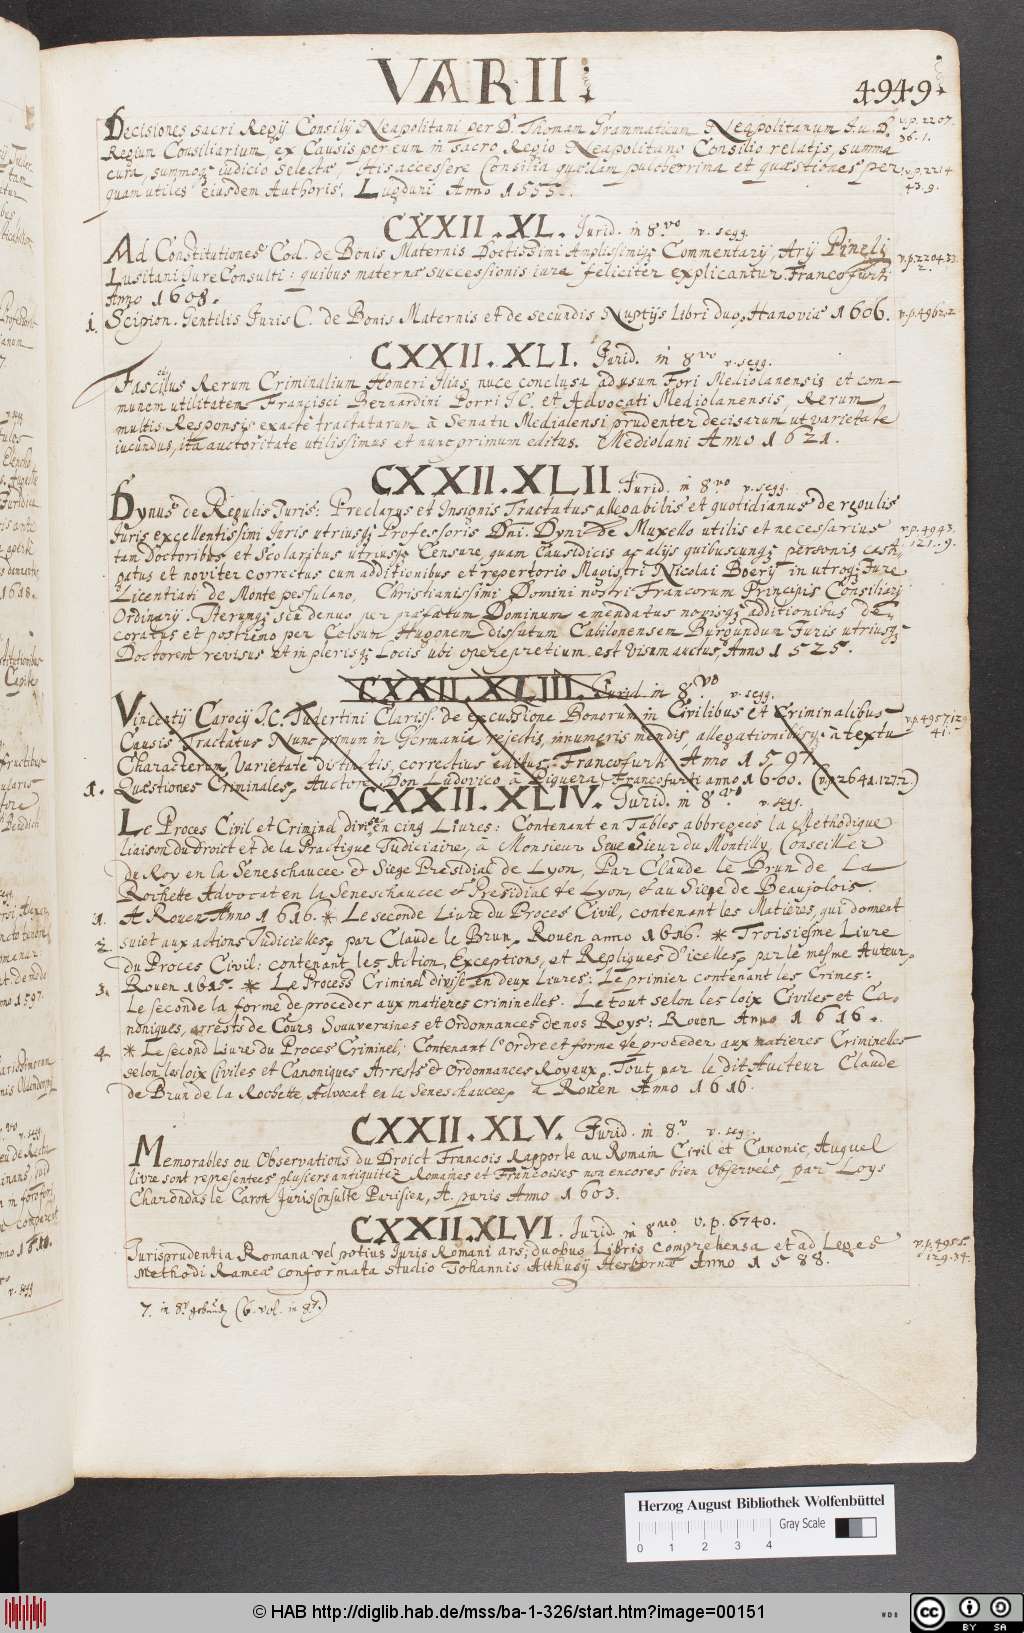 VARII.
4949.
Decisiones sacri Regij Consilij Neapolitani per D. Thomam Grammaticum Neapolitanum J.u.D.
v.p. 2207.
36.1.
Regium Consiliarium, ex Causis per eum in sacro Regio Neapolitano Consilio relatis, summa
cura, summoq; iudicio selectæ, His accessere Consilia quædam pulcherrima et quæstiones per
v.p. 2214
43.9.
quam utiles eiusdem Authoris. Lugduni Anno 1555.
CXXII.XL. Jurid. in 8.vo v. segg.
Ad Constitutiones Cod. de Bonis Maternis Doctissimi Amplissimiq; Commentarij, Arij Pinelj
Lusitani JureConsulti: quibus maternæ successionis iura feliciter explicantur. Francofurti
v.p. 2204.33.
2.
Anno 1608.
1. Scipion. Gentilis Juris C. de Bonis Maternis et de secundis Nuptijs Libri duo, Hanoviæ 1606.
v.p. 4962.2
CXXII.XLI. Jurid. in 8vo v. segg.
Fasciculus Rerum Criminalium Homeri Ilias, nuce conclusa ad usum Fori Mediolanensis et com-
munem utilitatem Francisci Bernardini Porri JC. et Advocati Mediolanensis, Rerum
multis Responsis exactè tractatarum à Senatu Mediolanensi prudenter decisarum ut varietate
iucundus, ita auctoritate utilissimus et nunc primum editus. Mediolani Anno 1621.
CXXII.XLII Jurid. in 8.vo v. segg.
Dynus de Regulis Juris: Preclarus et Insignis Tractatus allegabilis et quotidianus de regulis
Juris excellentissimi Juris utriusq; Professoris Dni. Dyni de Muxello utilis et necessarius
v.p. 4943.
121.9.
tam Doctoribus et Scolaribus utriusq; Censure, quam Causidicis ac alijs quibuscunq; personis casti-
gatus et noviter correctus cum additionibus et repertorio Magistri Nicolai Boerij in utroq; Jure
Licentiati de Monte pessulano, Christianissimi Domini nostri Francorum Principis Consiliarij
Ordinarij. Iterumq; seu denuo per præfatum Dominum emendatus novisq; additionibus de-
coratus et postremo per Celsum Hugonem dissutum Cabilonensem Burgundum Juris utriusq;
Doctorem revisus et in plerisq; Locis ubi operepretium est visum auctus, Anno 1525.
CXXII.XLIII. Jurid. in 8.vo v. segg.
Vincentij Carocij JC. Tudertini Clariss. de excussione Bonorum in Civilibus et Criminalibus
v.p. 4957.12
41.
Causis Tractatus Nunc primum in Germania rejectis, innumeris mendis, allegationibusq; in textu
Characterum Varietate distinctis, correctius editus. Francofurti Anno 1597.
1. Quæstiones Criminales, Auctore Don Ludovico à Peguera, Francofurti anno 1600. (v.p. 2641.127.2)
CXXII.XLIV. Jurid. in 8.vo v. segg.
Le Proces Civil et Criminel divisé en cinq Livres: Contenant en Tables abbregees la Methodique
liaison du Droict et de la Practique Judiciaire, à Monsieur Seve Sieur du Montilly Conseiller
du Roy en la Seneschaucee & Siege Presidial de Lyon, Par Claude le Brun de La
Rochette Advocat en la Seneschaucee & Presidial de Lyon, & au Siege de Beaujolois.
1. A Rouen Anno 1616. * Le seconde Livre du Proces Civil, contenant les Matieres, qui donnent
2. suiet aux actions Judicielles, par Claude le Brun, Rouen anno 1616. * Troisiesme Livre
du Proces Civil: contenant les Action, Exceptions, et Repliques d'icelles, par le mesme Auteur,
3. Rouen 1615. * Le Process Criminel divisé en deux Livres: Le primier contenant les Crimes:
Le seconde la forme de proceder aux matieres criminelles. Le tout selon les loix Civiles et Ca-
noniques, arrests de Cours Souuveraines et Ordonnances de nos Roys: Rouen Anno 1616.
4. * Le second Livre du Proces Criminel; Contenant l'Ordre et forme de proceder aux matieres Criminelles
selon les loix Civiles et Canoniques Arrests & Ordonnances Royaux, Tout par le dit Aucteur Claude
de Brun de la Rochette Advocat en la Seneschaucee, a Rouen Anno 1616.
CXXII.XLV. Jurid. in 8.v v. seg.
Memorables ou Observations du Droict Francois Rapporte au Romain Civil et Canonic, Auquel
livre sont representees plusiers antiquitez Romaines et Francoises non encores bien observées, par Loys
Charondas le Caron Jurisconsulte Parisien, A. paris Anno 1603.
CXXII.XLVI. Jurid. in 8uo v.p. 6740.
Jurisprudentia Romana vel potius Juris Romani ars; duobus Libris comprehensa et ad Leges
v.p. 4955.
129.34.
Methodi Rameæ conformata studio Johannis Althusij Herbornæ Anno 1588.
7. in 8.v (6. vol. in 8.v)
Herzog August Bibliothek Wolfenbüttel
Gray Scale
0 1 2 3 4
© HAB http://diglib.hab.de/mss/ba-1-326/start.htm?image=00151
WDB
cc BY SA